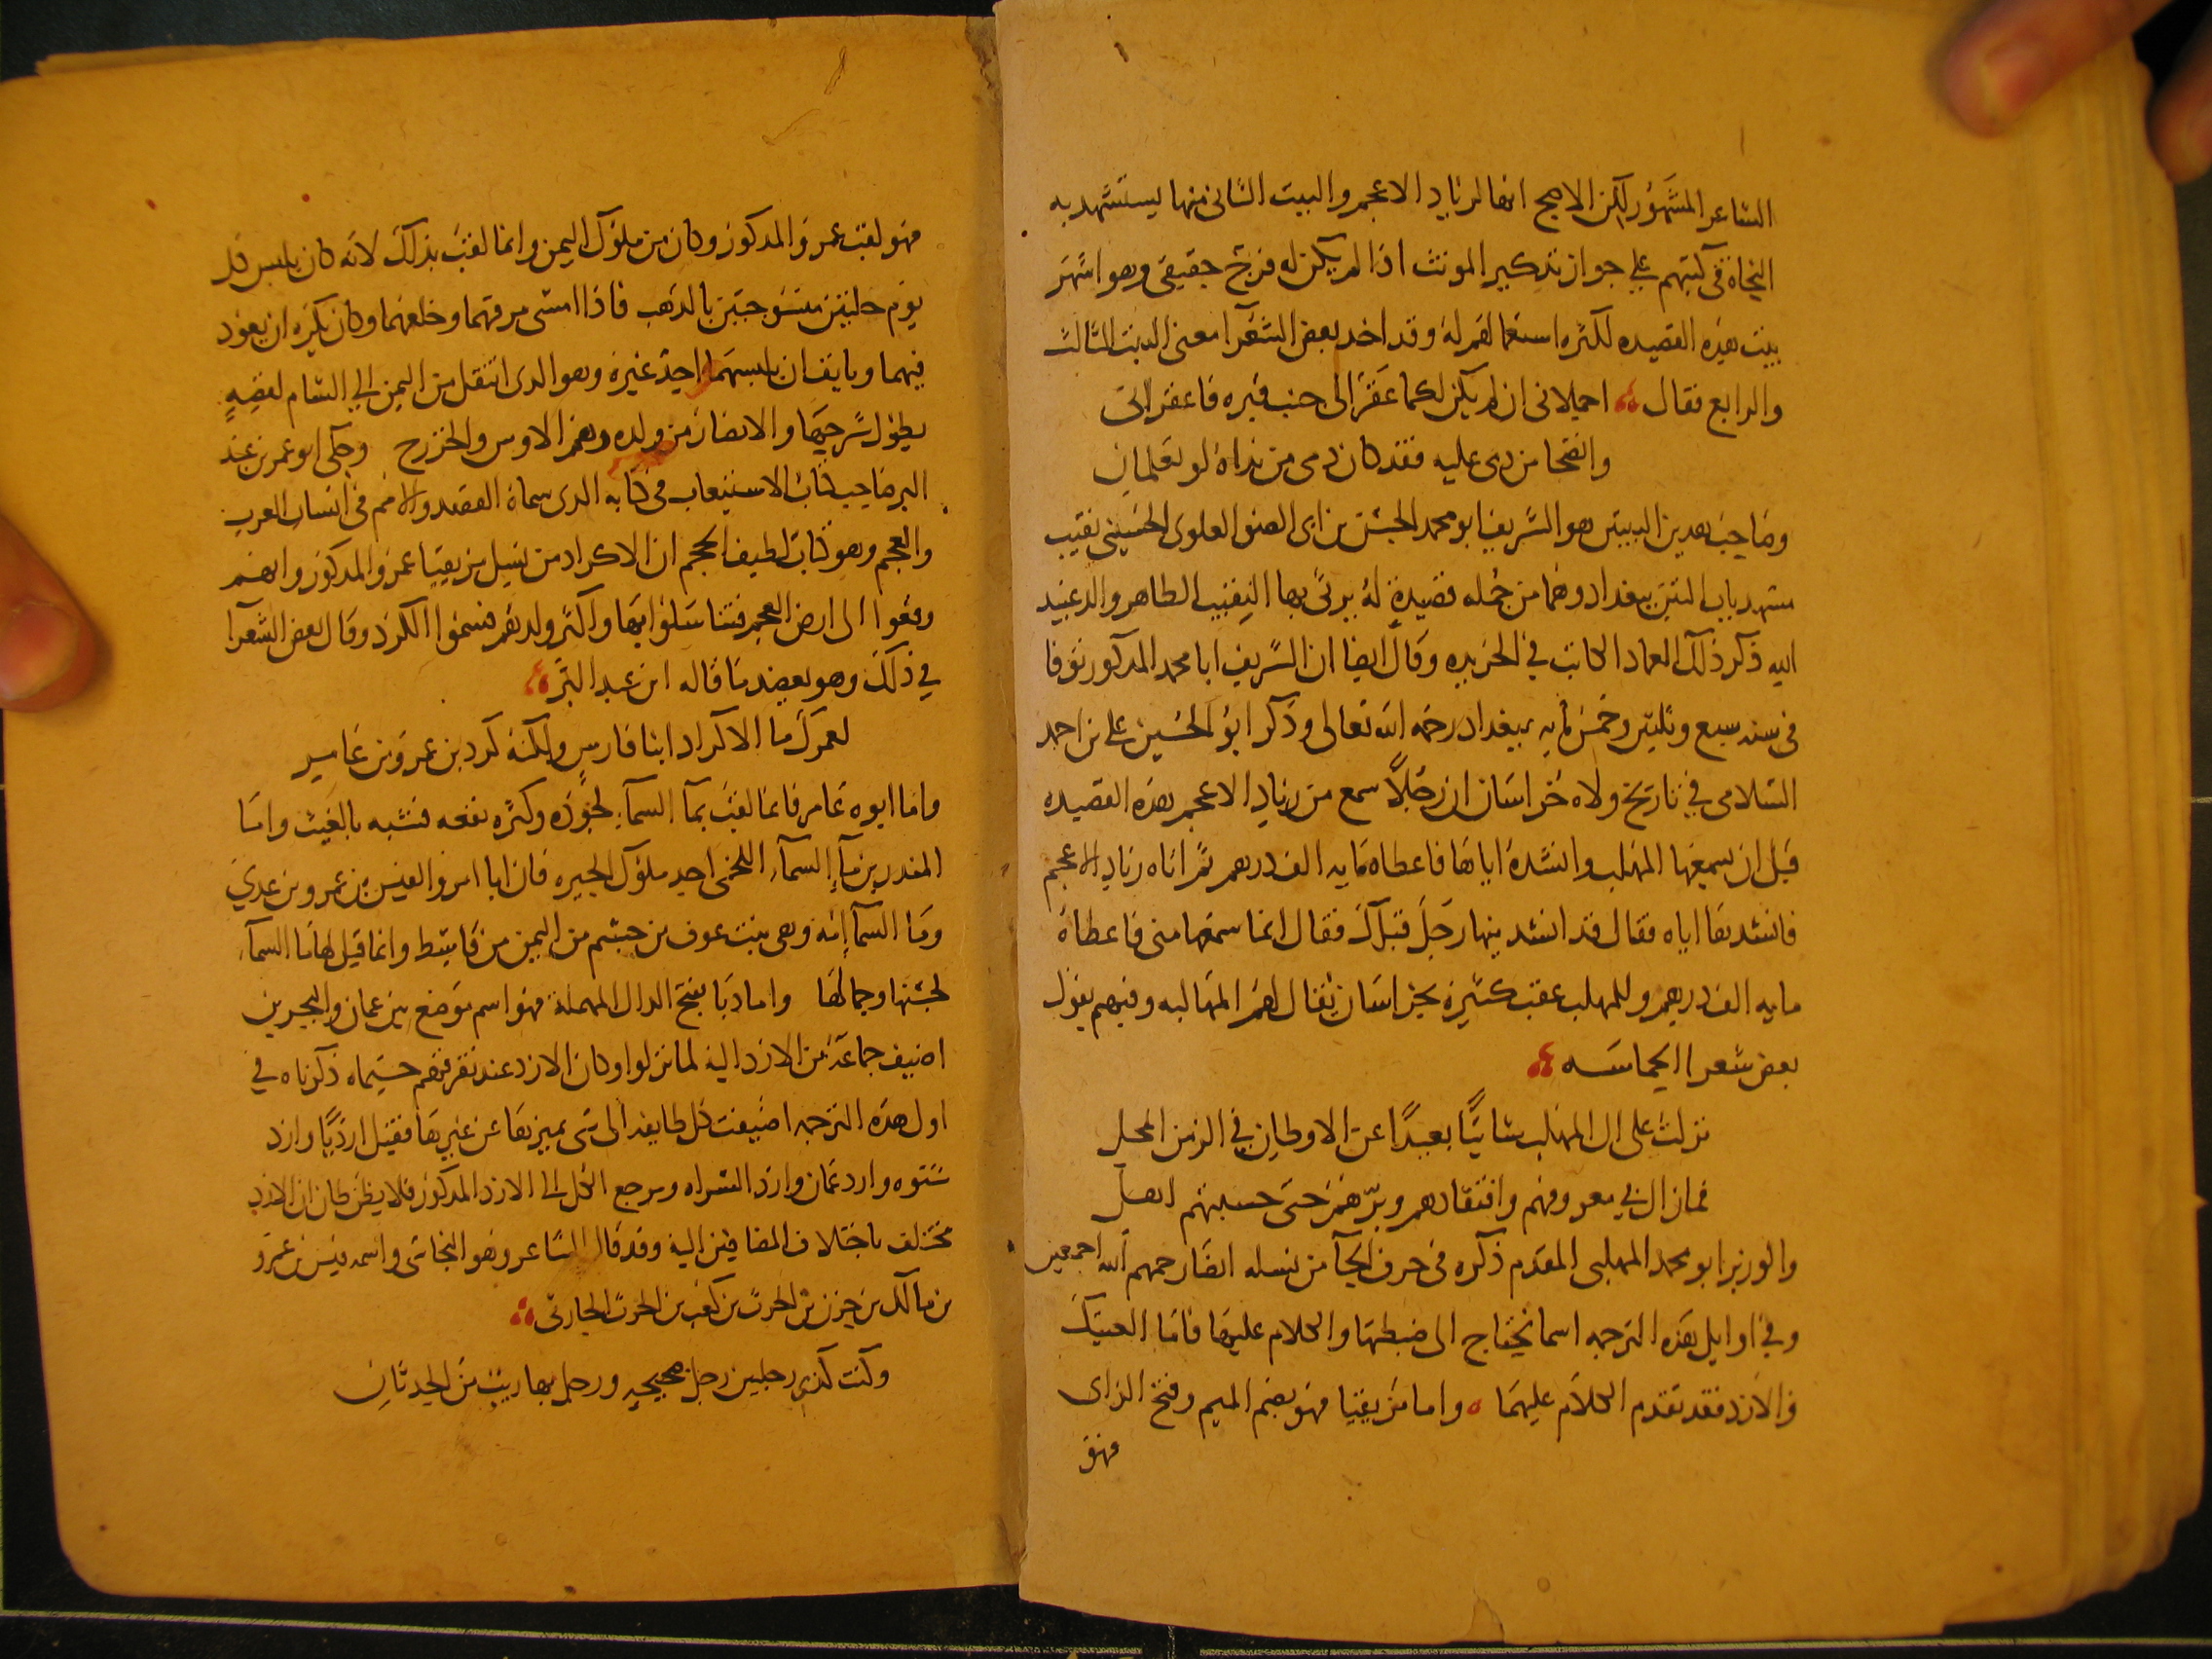 الشاعر المشهور لكن الاصح انها لزياد الاعجم والبيت الثانى منها يستشهد به
النحاة فى كتبهم على جواز تذكير المونث اذا لم يكن له فرج حقيقى وهو اشهر
بيت هذه القصيده لكثره استعمالهم له وقد اخذ بعض الشعرا معنى البيت الثالث
والرابع فقال احملانى ان لم يكن لكما عقر الى جنب قبره فاعقرانى
وانضحا من دمى عليه فقد كان دمى من نداه لو تعلمان
وصاحب هدين البيتين هو الشريف ابو محمد الحسن بن ابى الضو العلوى الحسينى نقيب
مشهد باب التبن ببغداد وهما من جمله قصيدة له يرثى بها النقيب الطاهر والد عبيد
الله ذكر ذلك العماد الكاتب فى الخريده وقال ايضا ان الشريف ابا محمد المذكور توفا
فى سنه سبع وثلثين وخمس مايه ببغداد رحمه الله تعالى وذكر ابو الحسين على بن احمد
السلامى فى تاريخ ولاه خراسان ان رجلا سمع من زياد الاعجم هذه القصيده
قبل ان يسمعها المهلب وانشده اياها فاعطاه مايه الف درهم ثم اتاه زياد الاعجم
فانشدها اياه فقال قد انشدنيها رجل قبلك فقال انما سمعها منى فاعطاه
مايه الف درهم وللمهلب عقب كثيرة بخراسان يقال لهم المهالبه وفيهم يقول
بعض شعرا الحماسه
نزلت على ال المهلب شاتيا بعيدا عن الاوطان فى الزمن المحل
فمازال بى معروفهم وافتقادهم وبرهم حتى حسبتهم اهلى
والوزير ابو محمد المهلبى المقدم ذكره فى حرف الحآ من نسله ايضا رحمهم الله اجمعين
وفى اوايل هذه الترجمه اسما تحتاج الى ضبطها والكلام عليها فاما العتيك
والازد فقد تقدم الكلام عليهما واما مزيقيا فهو بضم الميم وفتح الزاى
فهو
فهو لقب عمرو المذكور وكان من ملوك اليمن وانما لقب بذلك لانه كان يلبس كل
يوم حلتين منسوجتين بالذهب فاذا امسى مزقهما وخلعهما وكان يكره ان يعود
فيهما ويانف ان يلبسهما احد غيره وهو الدى انتقل من اليمن الى الشام لقصة
يطول شرحها والانصار من ولده وهم الاوس والخزرج وحكى ابو عمر بن عبد
البر صاحب كتاب الاستيعاب فى كتابه الدى سماه القصد والامم فى انساب العرب
والعجم وهو كتاب لطيف الحجم ان الاكراد من نسل مزيقيا عمرو المذكور وانهم
وقعوا الى ارض العجم فتناسلوا بها وكثر ولدهم فسموا الكرد وقال بعض الشعرا
فى ذلك وهو يعضد ما قاله ابن عبد البر
لعمرك ما الاكراد ابنا فارس ولكنه كرد بن عمرو بن عامر
واما ابوه عامر فانما لقب بمآ السمآ لجوده وكثره نفعه فشبه بالغيث واما
المندر بن مآ السمآ اللخمى احد ملوك الحيره فان ابا امرو القيس بن عمرو بن عدى
ومآ السمآ امه وهى بنت عوف بن جشم من اليمن من قاسط وانما قيل لها مآ السمآ
لحسنها وجمالها واما دبا بفتح الدال المهملة فهو اسم موضع بين عمان والبحرين
اضيف جماعة من الازد اليه لما نزلوا وكان الازد عند تفرقهم حسبما ذكرناه فى
اول هذه الترجمه اضيفت كل طايفه الى شى يميزها عن غيرها فقيل ازد دبا وازد
شنوه وازد عمان وازد السراه ومرجع الكل الى الازد المذكور فلا يظن ظان ان الازد
مختلف باختلاف المضافين اليه وقد قال الشاعر وهو النجاشى واسمه قيس بن عمرو
بن مالك بن حزن بن الحرث بن كعب بن الحرث الحارثى
وكنت كذى رجلين رجل صحيحة ورجل بها ريب من الحدثان